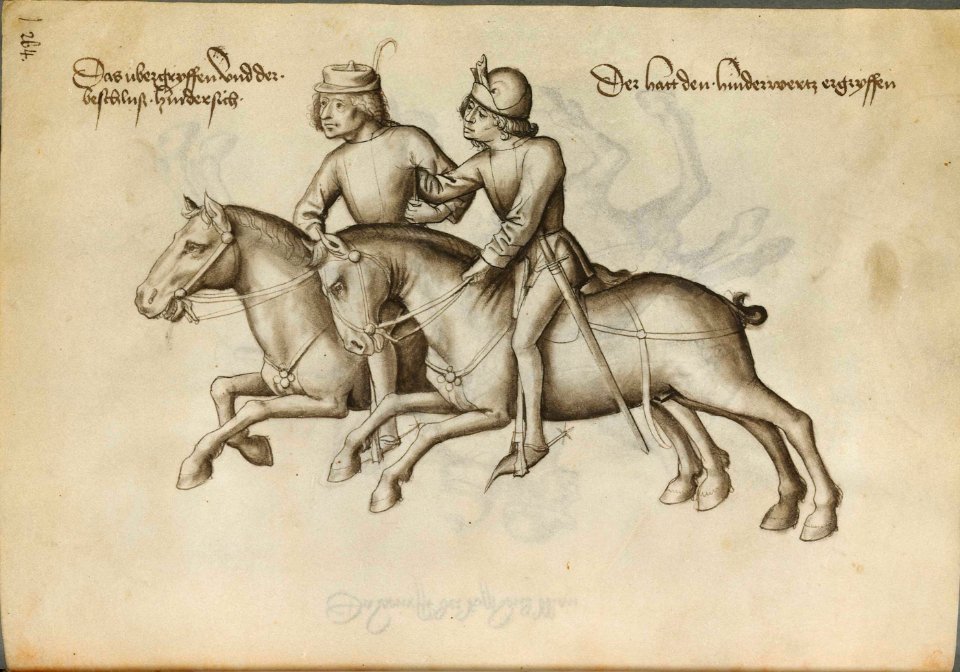 264.
Das übergryffen Vnd der·
beschluß· hindersich·
Der hatt den· hinderwertz ergryffen